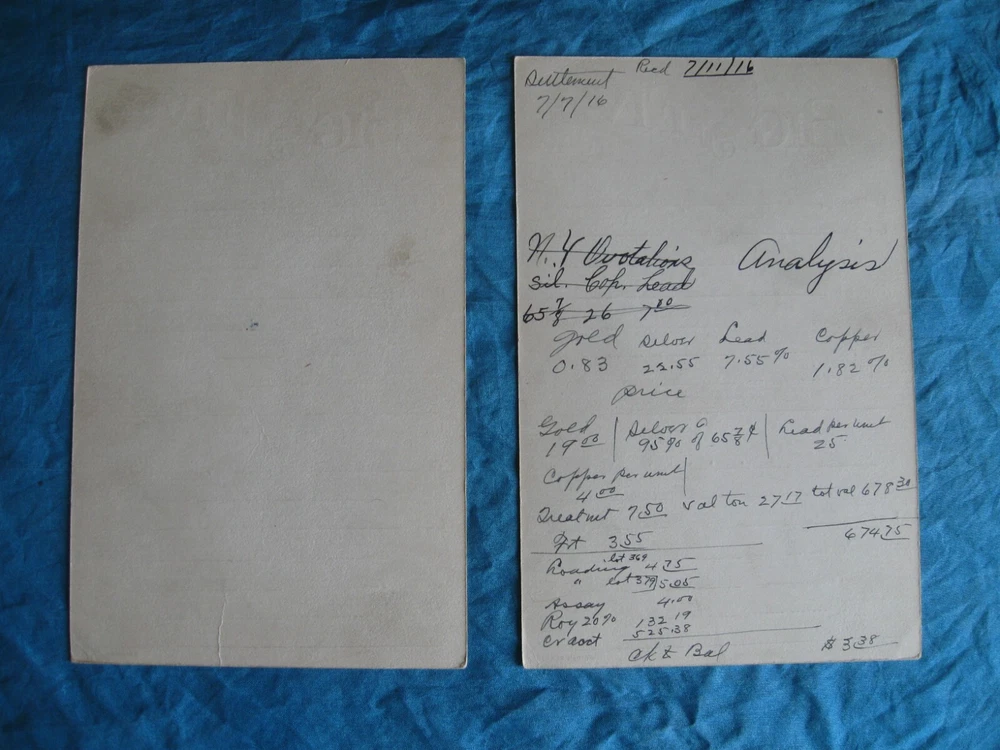 Settlement Recd 7/11/16
7/7/16
N.Y Quotations
Sil. Cop. Lead
65 7/8 26 7
Analysis
Gold Silver Lead Copper
0.83 22.55 7.55% 1.82%
Price
Gold | Silver | Lead per unit
19 00 | 95% of 65 7/8 ¢ | 25
Copper per unit
4 00
Treatmt 7.50 Val ton 27.17 tot val 678 30
Frt 3.55 674.75
Loading lot 369 4.75
" lot 379 5.05
Assay 4.00
Roy 20% 132 19
Cr acct 525.38
Ck & Bal $ 3.38